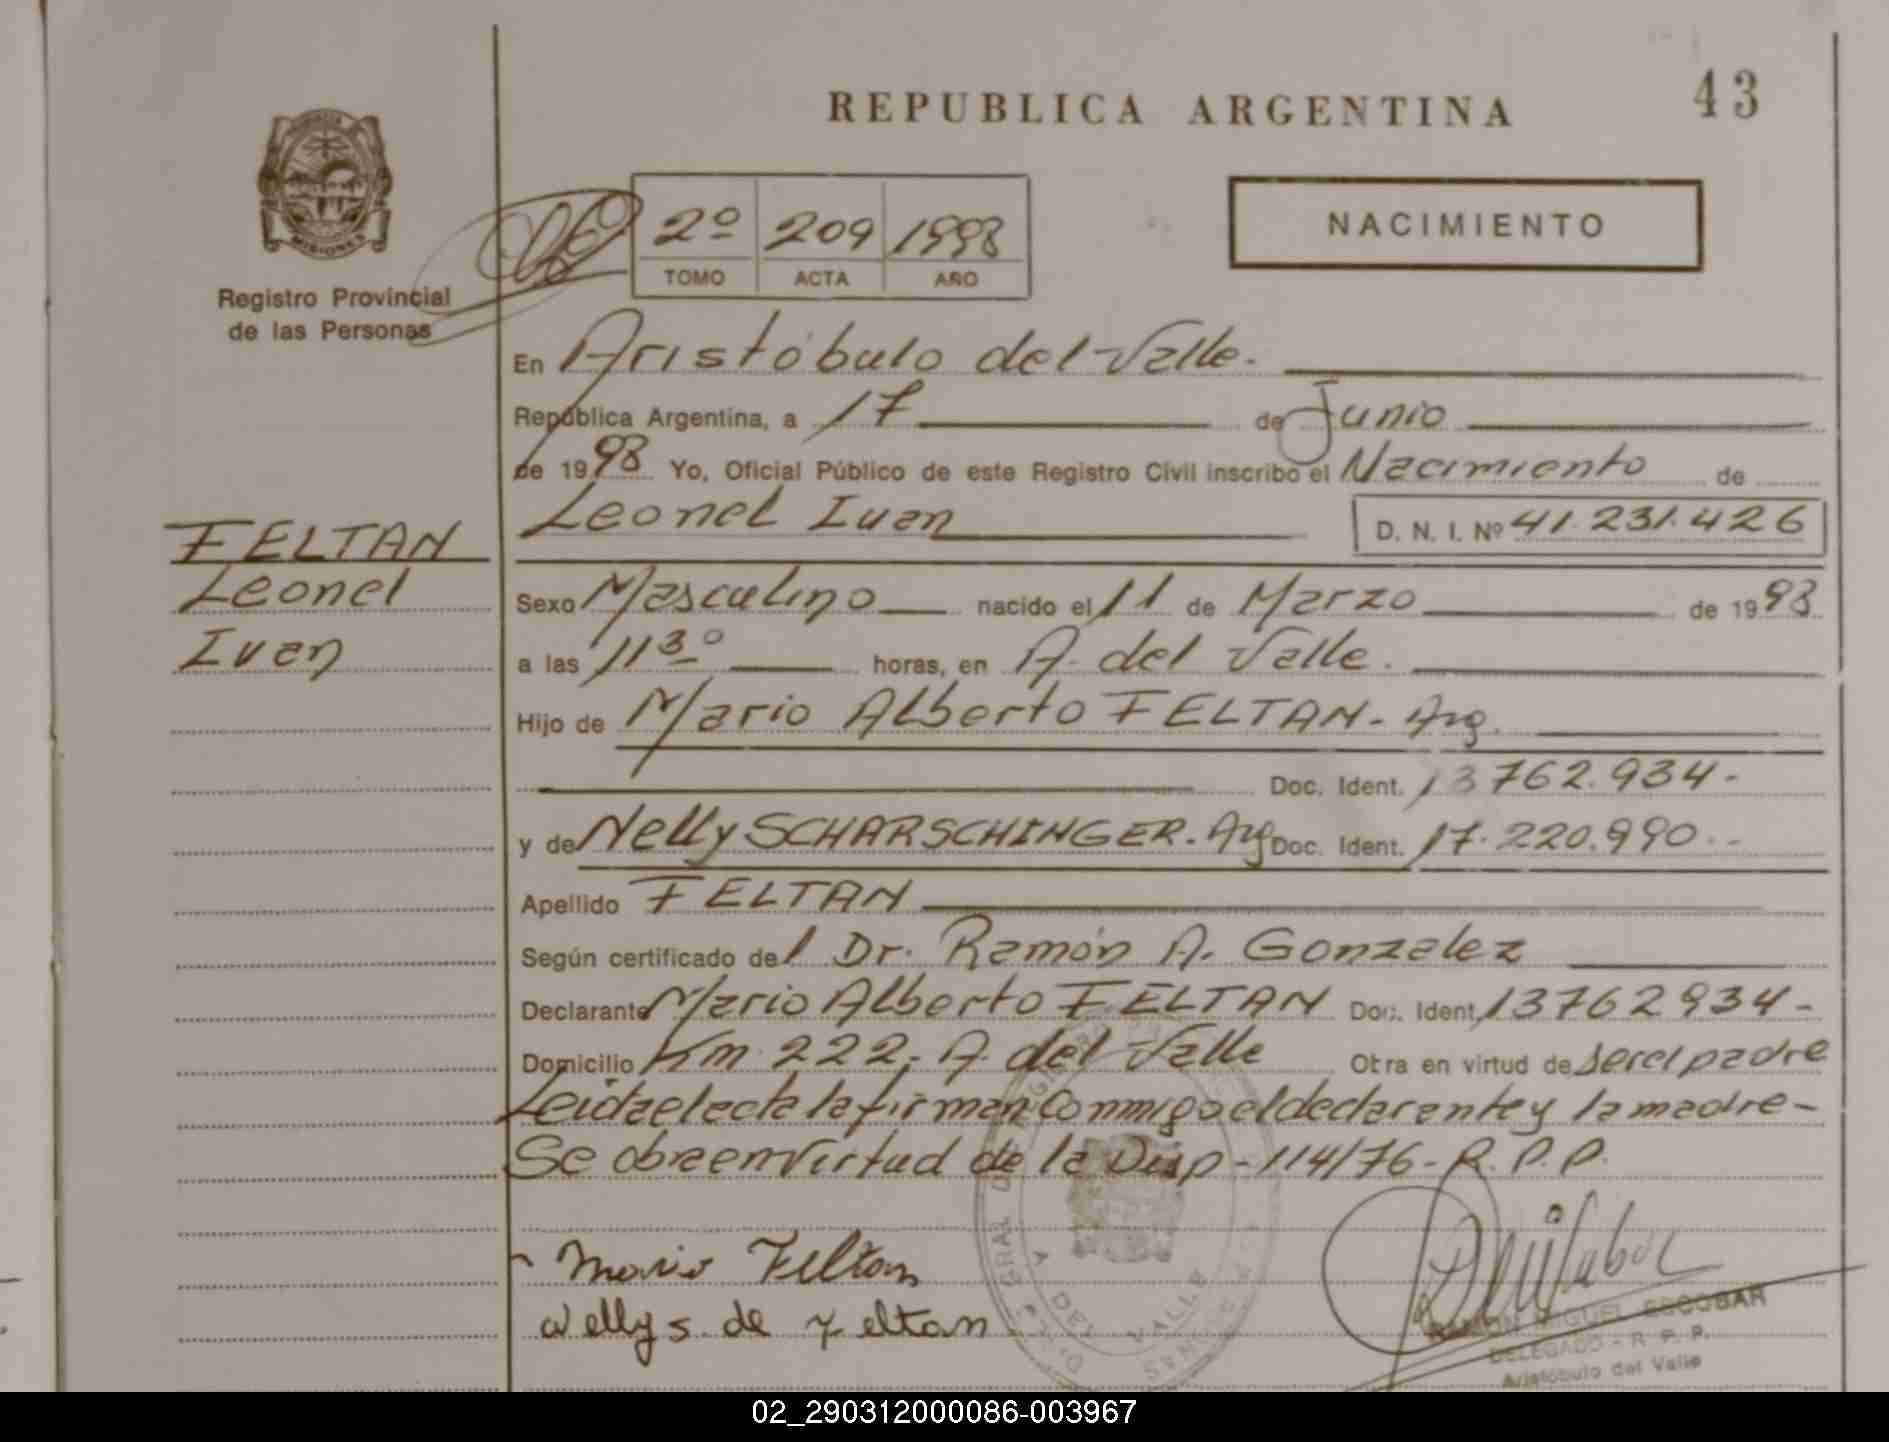 43
REPUBLICA ARGENTINA
MISIONES
Registro Provincial
de las Personas
2º 209 1998
TOMO ACTA AÑO
NACIMIENTO
En Aristóbulo del Valle.
República Argentina, a 17 de Junio
de 1998 Yo, Oficial Público de este Registro Civil inscribo el Nacimiento de
Leonel Ivan D. N. I. Nº 41.231.426
FELTAN
Leonel
Ivan
Sexo Masculino nacido el 11 de Marzo de 1998
a las 11 30 horas, en A. del Valle.
Hijo de Mario Alberto FELTAN - Arg.
Doc. Ident. 13762.934-
y de Nelly SCHARSCHINGER. Arg Doc. Ident. 17.220.990.-
Apellido FELTAN
Según certificado del Dr. Ramón A. Gonzalez
Declarante Mario Alberto FELTAN Doc. Ident. 13762934-
Domicilio Km. 222. A. del Valle Obra en virtud de ser el padre
Leida el acta la firman conmigo el declarante y la madre-
Se obra en virtud de la Disp-114/76-R.P.P.
Mario Feltan
Nelly S. de Feltan
A DEL VALLE
RAMON MIGUEL ESCOBAR
DELEGADO - R. P. P.
Aristóbulo del Valle
02_290312000086-003967